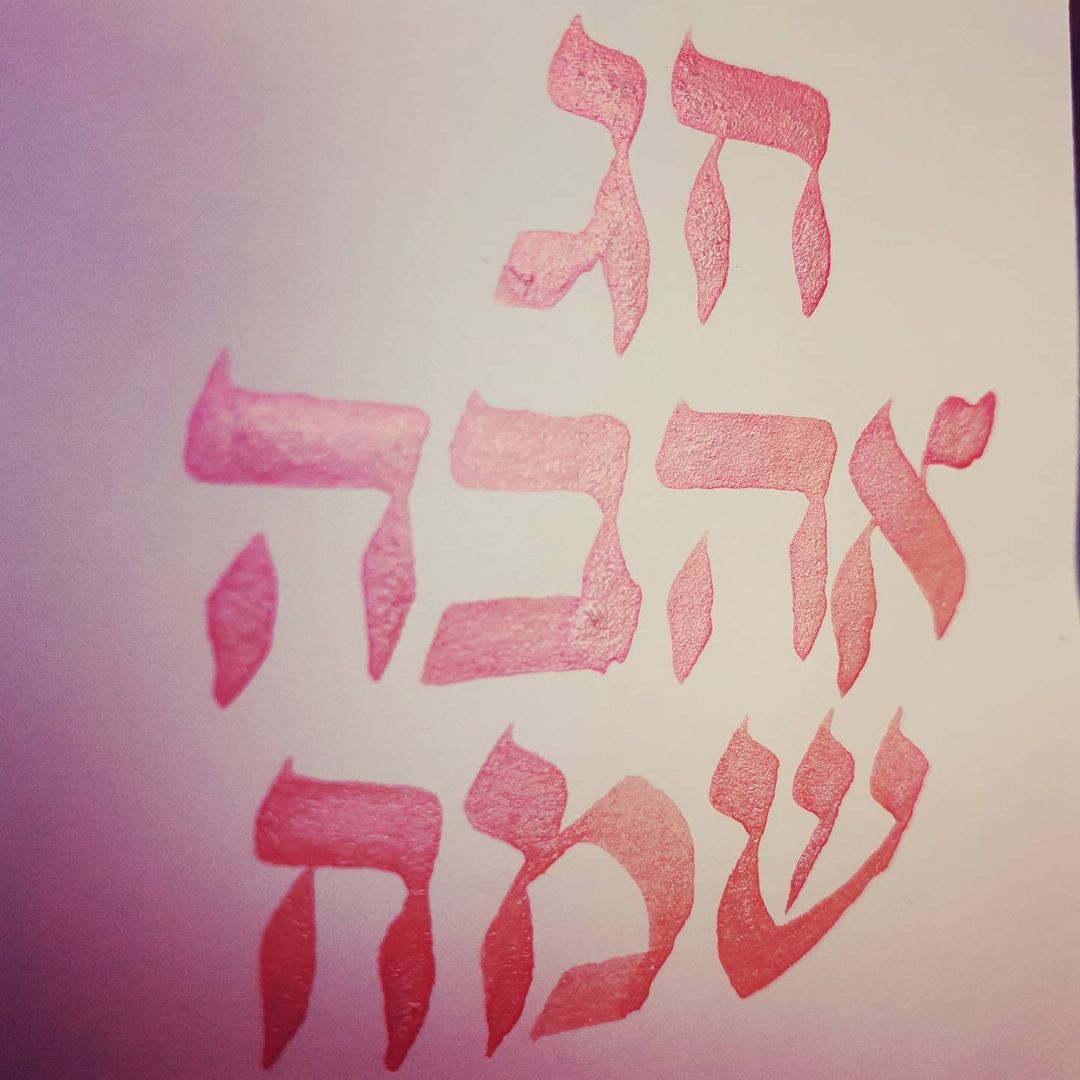 חג
אהבה
שמח